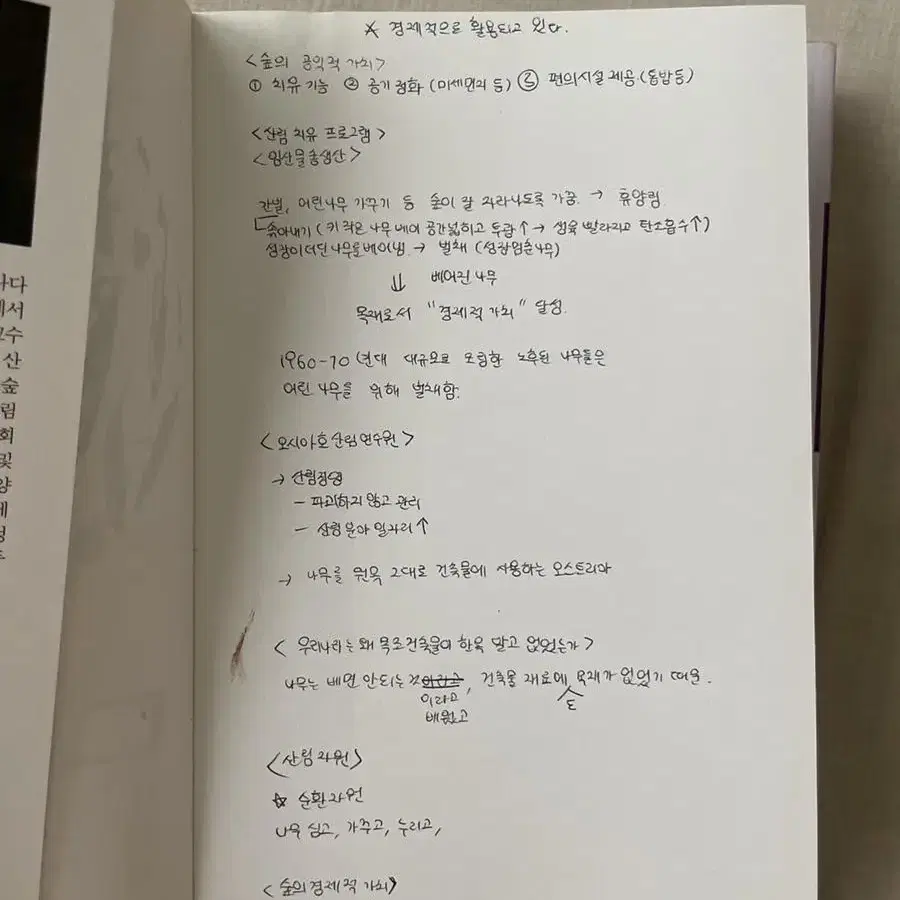 ☆ 경제적으로 활용되고 있다.
<숲의 공익적 가치>
① 치유기능 ② 공기정화 (미세먼지 등) ③ 편의시설 제공 (등밤등)
<산림 치유 프로그램>
<임산물 총생산>
간벌, 어린나무 가꾸기 등 숲이 잘 자라나도록 가꿈. → 휴양림
솎아내기 (키 작은 나무 베어 공간넓히고 투광↑ → 성육 빨라지고 탄소흡수↑)
성장이 더딘 나무를 베어냄. → 벌채 (성장멈춘나무)
⇓ 베어진 나무
목재로서 "경제적 가치" 달성.
1960-70년대 대규모로 조림한 노후된 나무들은
어린 나무를 위해 벌채함.
<오시아호산림연수원>
→ 산림경영
- 파괴하지 않고 관리
- 산림 분야 일자리↑
→ 나무를 원목 그대로 건축물에 사용하는 오스트리아
<우리나라는 왜 목조건축물이 한옥 말고 없었는가>
나무는 베면 안되는 것이라고, 건축물 재료에 목재가 없었기 때문.
이라고
배웠고
<산림자원>
☆ 순환자원
나무 심고, 가꾸고, 누리고,
<숲의 경제적 가치>
나다
에서
교수
산
숲
림
회
및
양